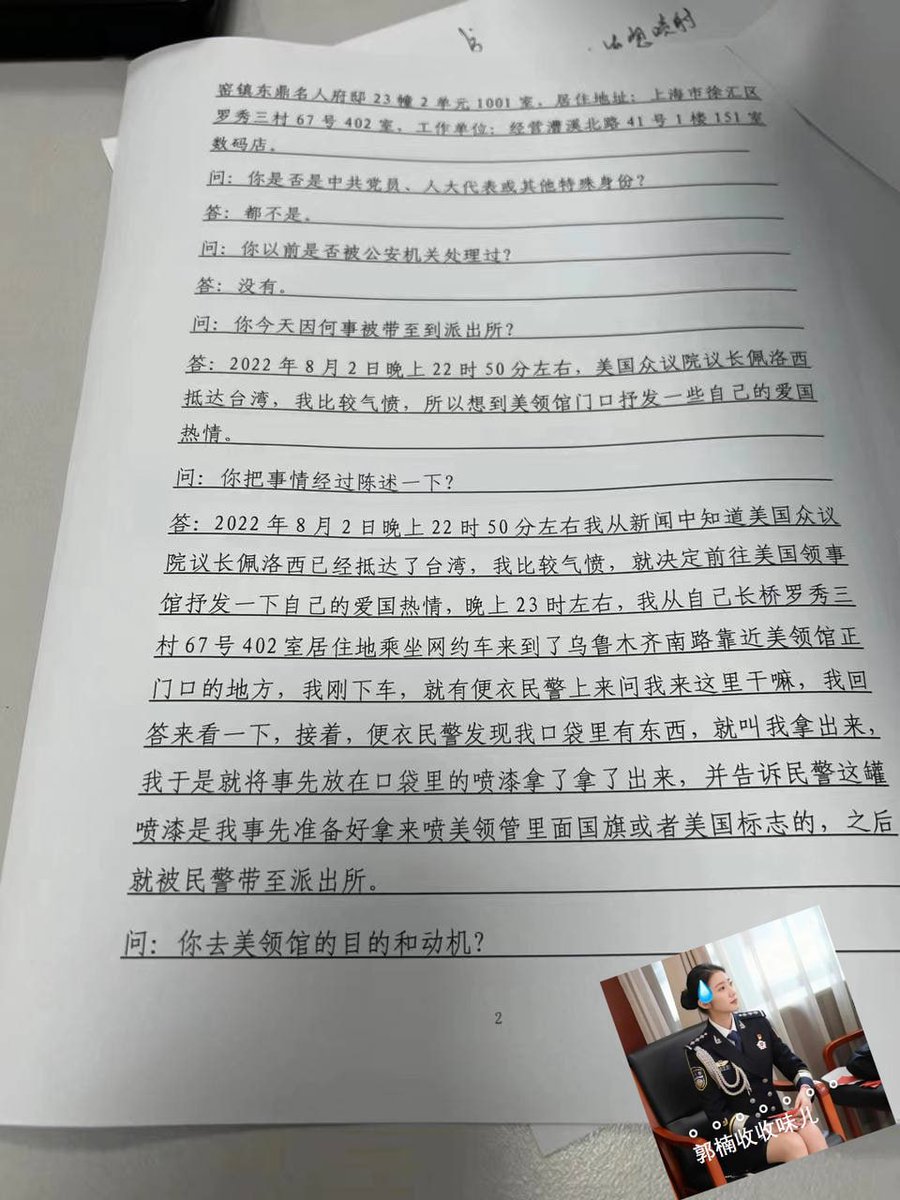 窑镇东鼎名人府邸 23 幢 2 单元 1001 室，居住地址：上海市徐汇区
罗秀三村 67 号 402 室，工作单位：经营漕溪北路 41 号 1 楼 151 室
数码店。
问：你是否是中共党员、人大代表或其他特殊身份？
答：都不是。
问：你以前是否被公安机关处理过？
答：没有。
问：你今天因何事被带至到派出所？
答：2022 年 8 月 2 日晚上 22 时 50 分左右，美国众议院议长佩洛西
抵达台湾，我比较气愤，所以想到美领馆门口抒发一些自己的爱国
热情。
问：你把事情经过陈述一下？
答：2022 年 8 月 2 日晚上 22 时 50 分左右我从新闻中知道美国众议
院议长佩洛西已经抵达了台湾，我比较气愤，就决定前往美国领事
馆抒发一下自己的爱国热情，晚上 23 时左右，我从自己长桥罗秀三
村 67 号 402 室居住地乘坐网约车来到了乌鲁木齐南路靠近美领馆正
门口的地方，我刚下车，就有便衣民警上来问我来这里干嘛，我回
答来看一下，接着，便衣民警发现我口袋里有东西，就叫我拿出来，
我于是就将事先放在口袋里的喷漆拿了拿了出来，并告诉民警这罐
喷漆是我事先准备好拿来喷美领管里面国旗或者美国标志的，之后
就被民警带至派出所。
问：你去美领馆的目的和动机？
2
郭楠收收味儿